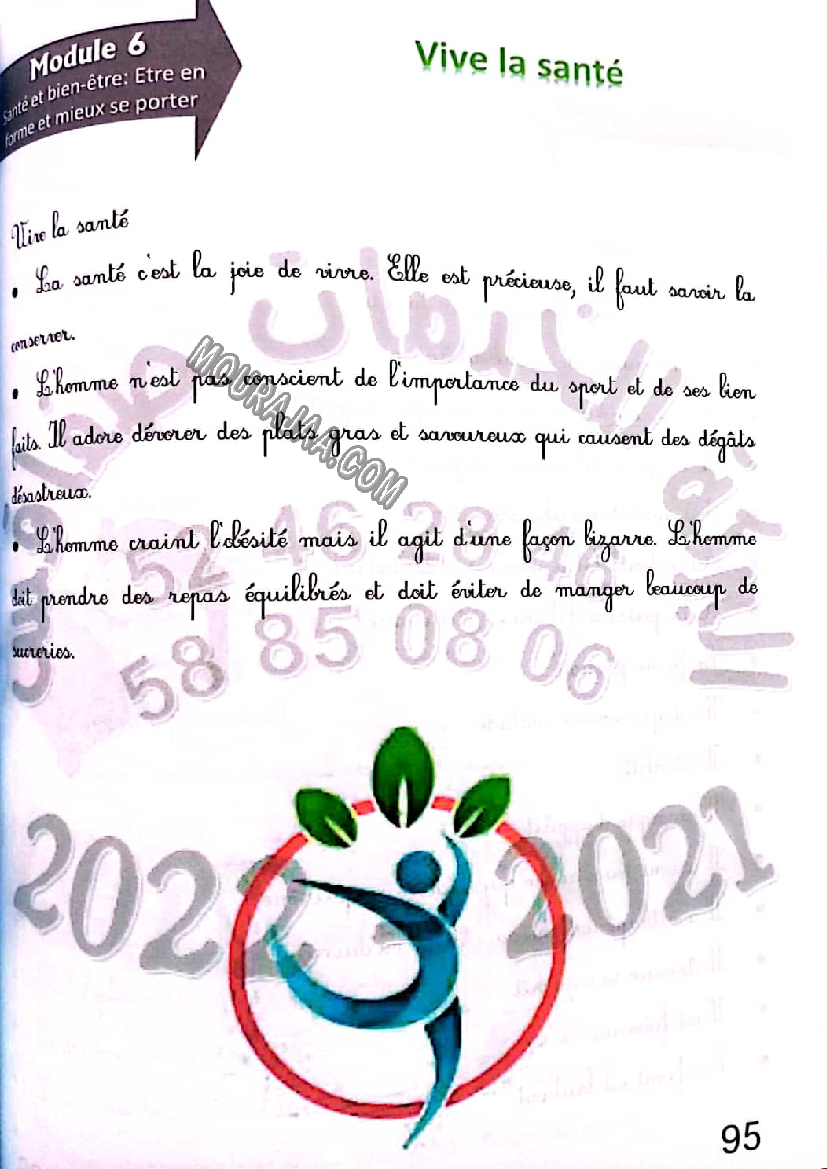 Module 6
Santé et bien-être: Etre en
forme et mieux se porter
Vive la santé
Vive la santé
• La santé c'est la joie de vivre. Elle est précieuse, il faut savoir la
conserver.
• L'homme n'est pas conscient de l'importance du sport et de ses bien
faits. Il adore dévorer des plats gras et savoureux qui causent des dégâts
désastreux.
• L'homme craint l'obésité mais il agit d'une façon bizarre. L'homme
doit prendre des repas équilibrés et doit éviter de manger beaucoup de
sucreries.
MOURAJAA.COM
52 46 28 46
58 85 08 06
2022 - 2021
95